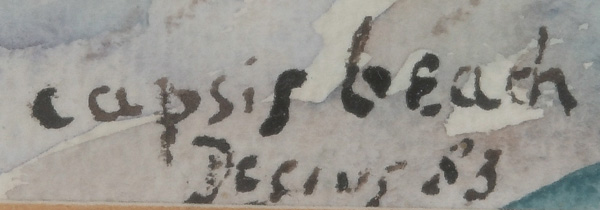 capsis beach
Decius 83